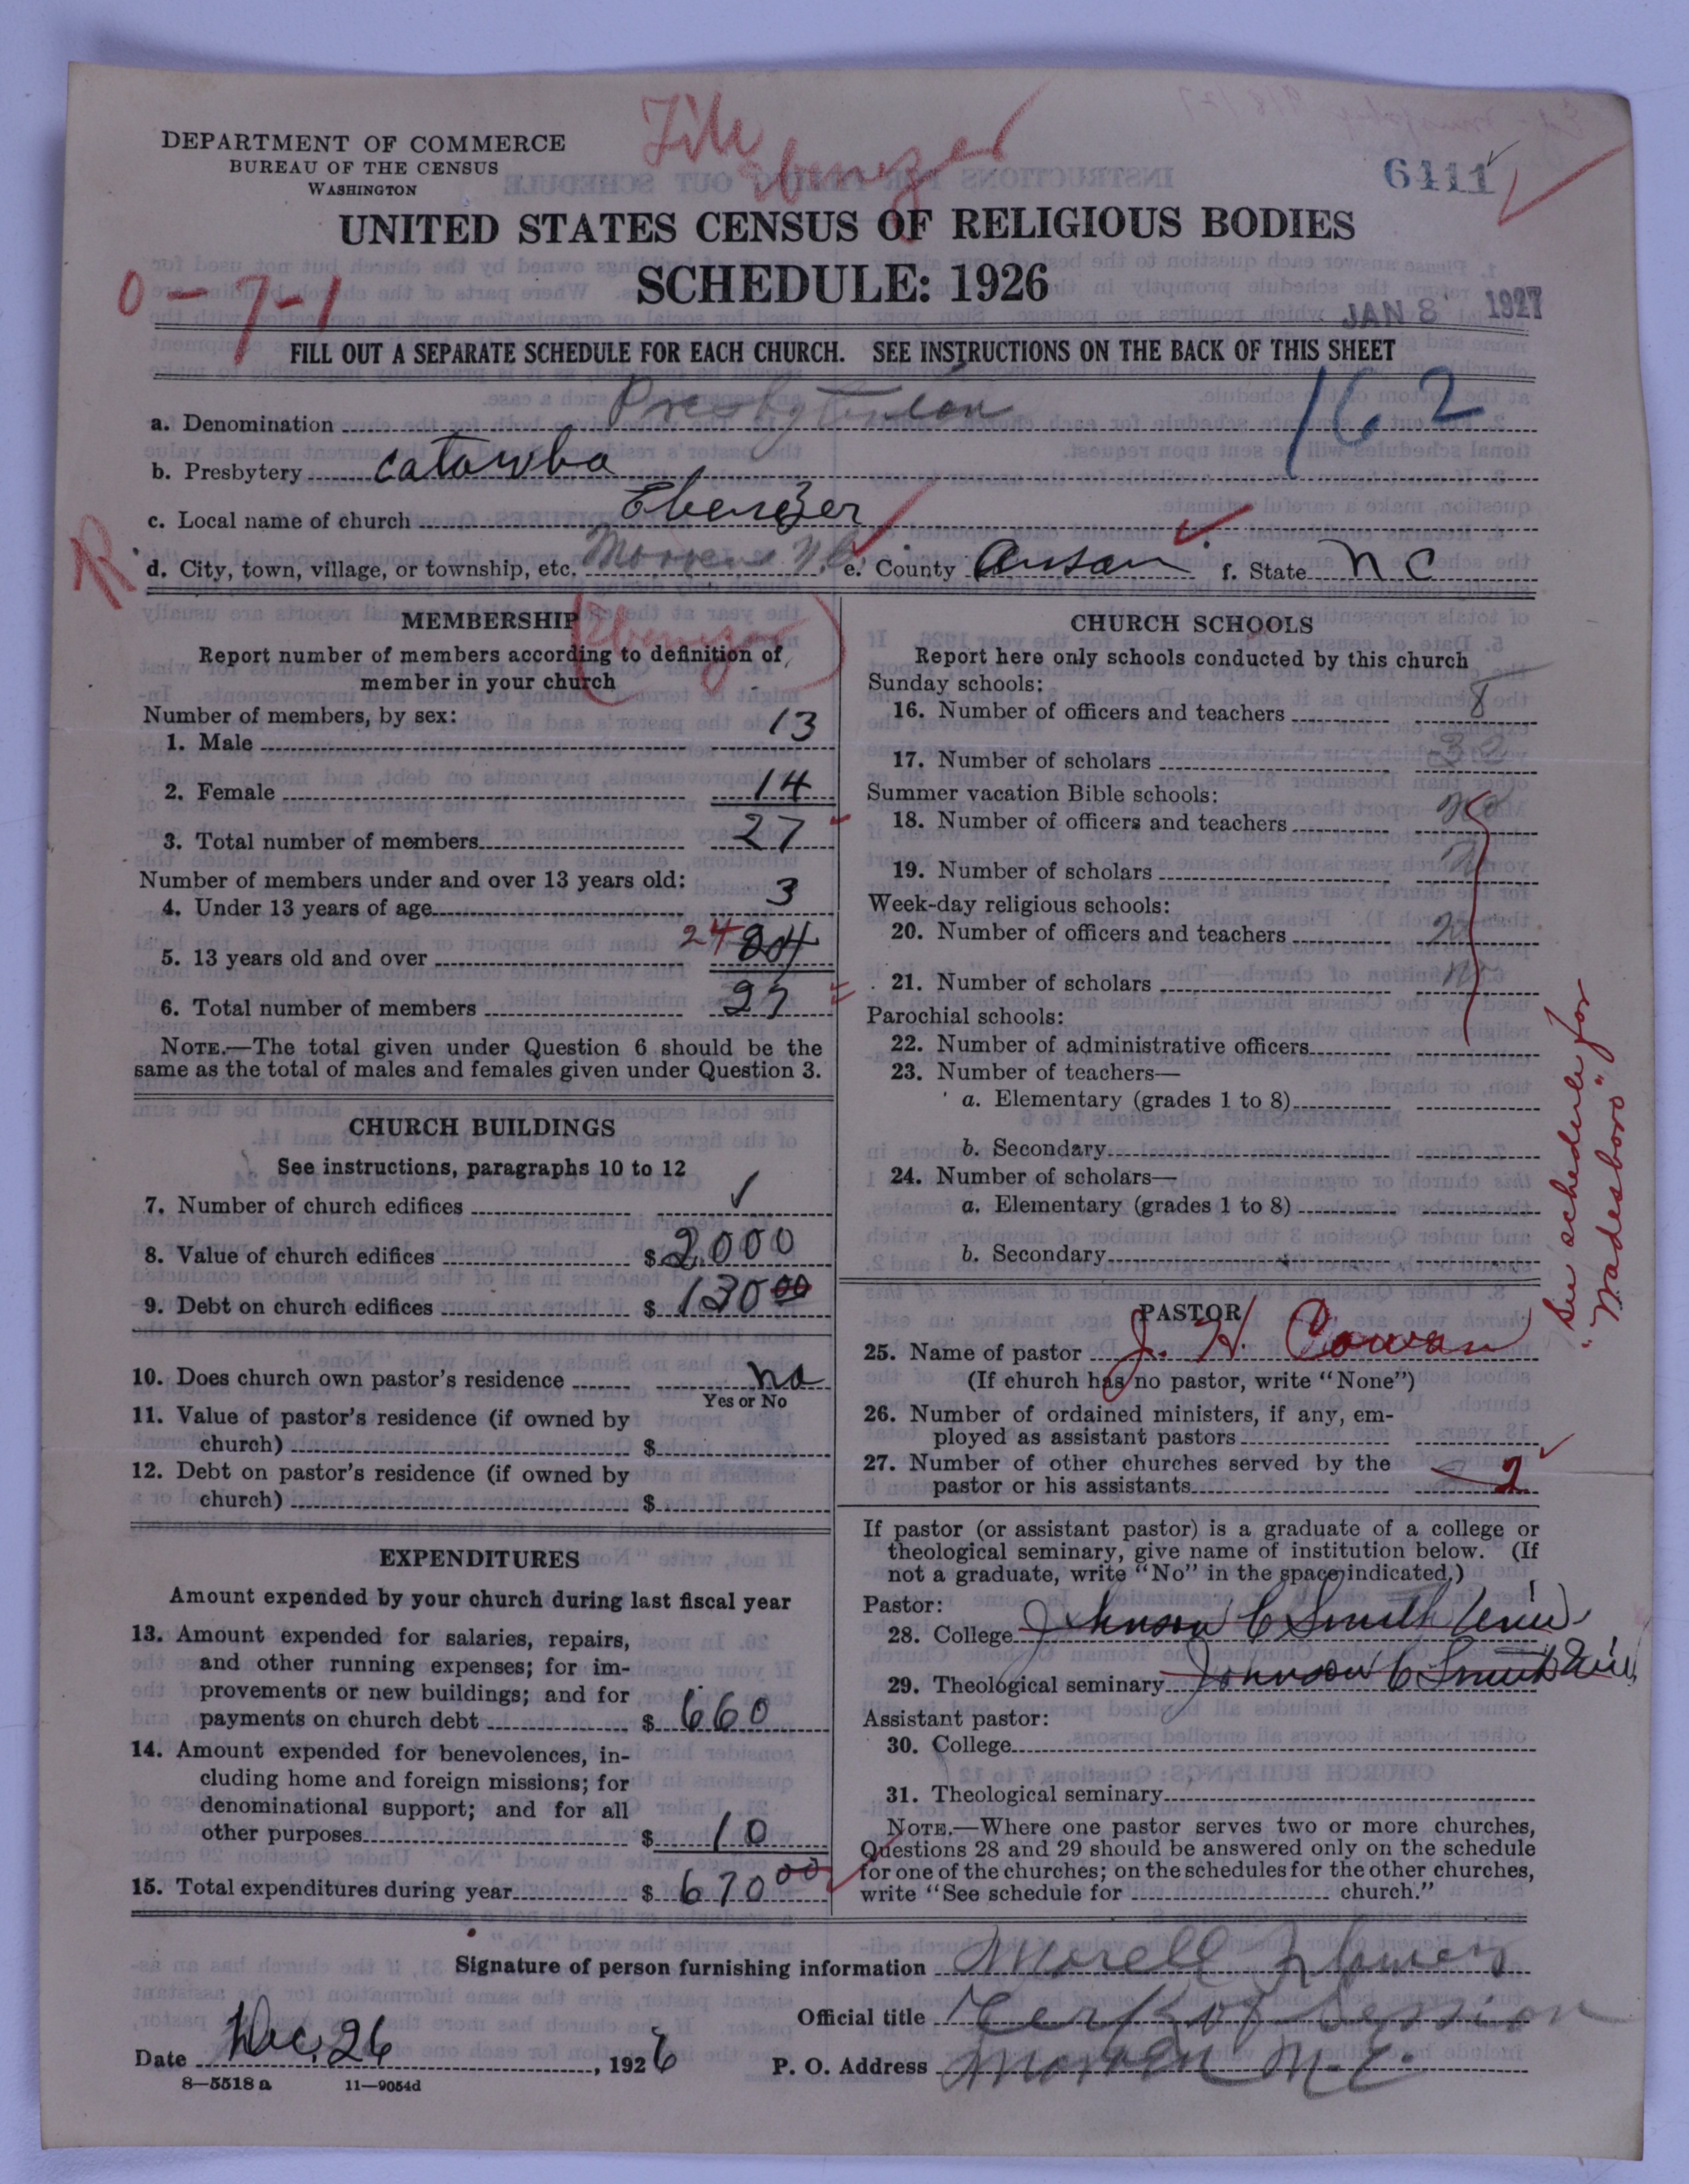 File
Ebenezer
DEPARTMENT OF COMMERCE
BUREAU OF THE CENSUS
WASHINGTON
6111
UNITED STATES CENSUS OF RELIGIOUS BODIES
SCHEDULE: 1926
0-7-1
JAN 8 1927
FILL OUT A SEPARATE SCHEDULE FOR EACH CHURCH. SEE INSTRUCTIONS ON THE BACK OF THIS SHEET
162
a. Denomination Presbyterian
b. Presbytery Catawba
c. Local name of church Ebenezer
R
d. City, town, village, or township, etc. Morven N.C. e. County Anson f. State N C
MEMBERSHIP
(Ebenezer)
Report number of members according to definition of member in your church
Number of members, by sex:
1. Male 13
2. Female 14
3. Total number of members 27
Number of members under and over 13 years old:
4. Under 13 years of age 3
5. 13 years old and over 24 24
6. Total number of members 27
NOTE.—The total given under Question 6 should be the
same as the total of males and females given under Question 3.
CHURCH BUILDINGS
See instructions, paragraphs 10 to 12
7. Number of church edifices ✓
8. Value of church edifices $ 2000
9. Debt on church edifices $ 130 00
10. Does church own pastor's residence no
Yes or No
11. Value of pastor's residence (if owned by
church) $
12. Debt on pastor's residence (if owned by
church) $
EXPENDITURES
Amount expended by your church during last fiscal year
13. Amount expended for salaries, repairs,
and other running expenses; for im-
provements or new buildings; and for
payments on church debt $ 660
14. Amount expended for benevolences, in-
cluding home and foreign missions; for
denominational support; and for all
other purposes $ 10
15. Total expenditures during year $ 670 00
CHURCH SCHOOLS
Report here only schools conducted by this church
Sunday schools:
16. Number of officers and teachers 8
17. Number of scholars
Summer vacation Bible schools:
18. Number of officers and teachers no
19. Number of scholars
Week-day religious schools:
20. Number of officers and teachers
21. Number of scholars no
Parochial schools:
22. Number of administrative officers
23. Number of teachers—
a. Elementary (grades 1 to 8)
b. Secondary
24. Number of scholars—
a. Elementary (grades 1 to 8)
b. Secondary
PASTOR
25. Name of pastor J. H. Cowan
(If church has no pastor, write "None")
26. Number of ordained ministers, if any, em-
ployed as assistant pastors
27. Number of other churches served by the
pastor or his assistants 2
If pastor (or assistant pastor) is a graduate of a college or
theological seminary, give name of institution below. (If
not a graduate, write "No" in the space indicated.)
Pastor:
28. College Johnson C Smith Univ.
29. Theological seminary Johnson C Smith Univ
Assistant pastor:
30. College
31. Theological seminary
NOTE.—Where one pastor serves two or more churches,
Questions 28 and 29 should be answered only on the schedule
for one of the churches; on the schedules for the other churches,
write "See schedule for church."
"See schedule for
"Wadesboro"
Signature of person furnishing information Morell
Official title Clerk of Session
Date Dec. 26, 1926 P. O. Address Morven N.C.
8—5518 a 11—9054d